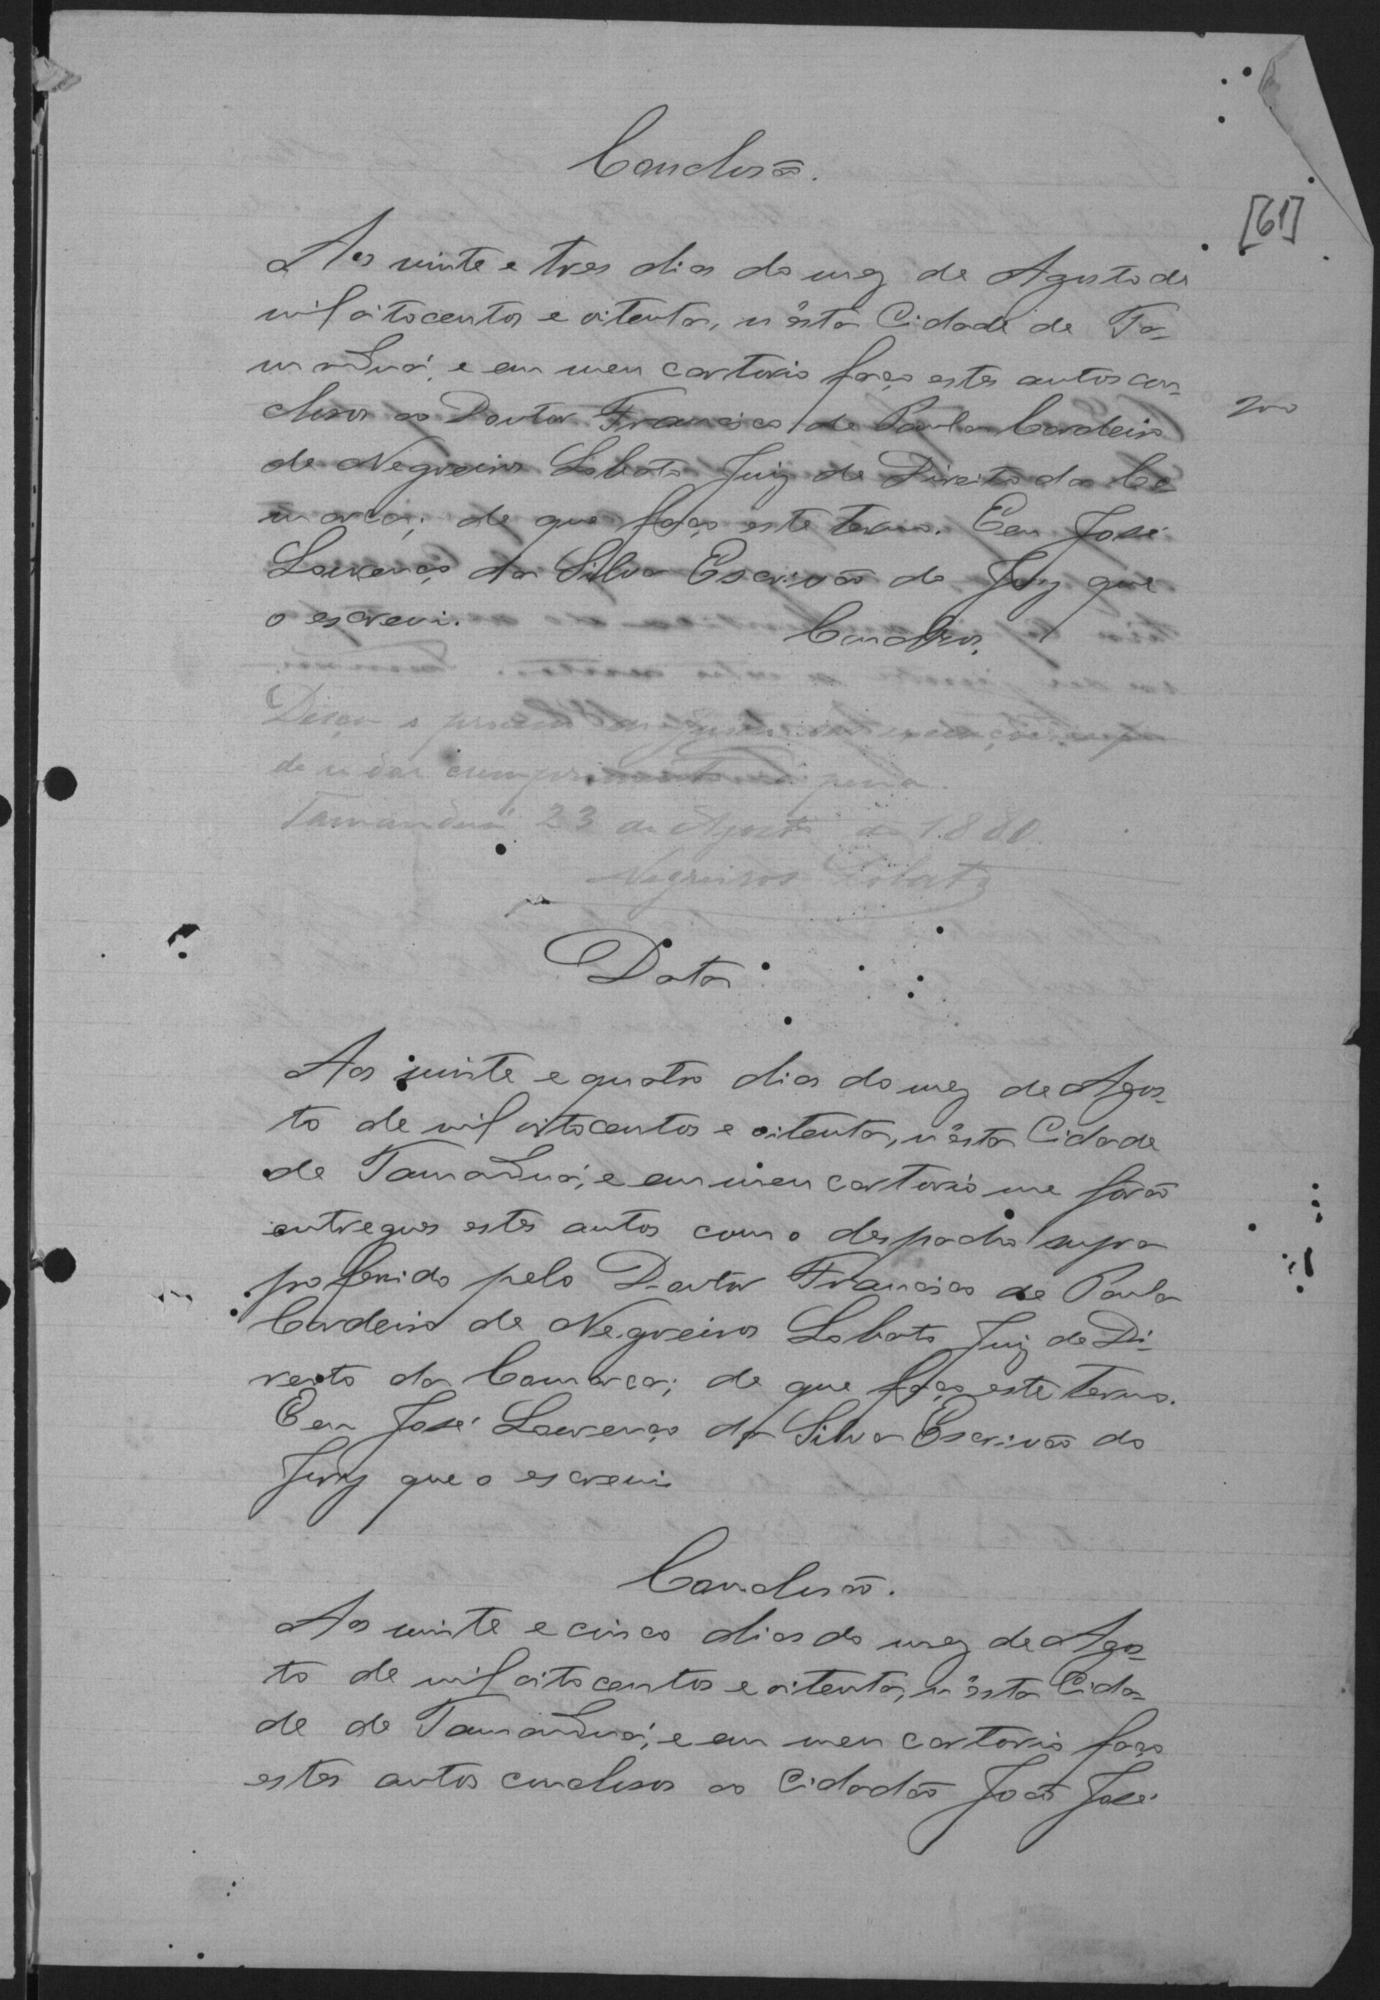 Conclusão.
[61]
Aos vinte e tres dias do mez de Agosto de
mil oitocentos e oitenta, n'ésta Cidade de Ta-
manduá, e em meu cartorio faço estes autos con-
clusos ao Doutor Francisco de Paula Cordeiro
200
de Negreiros Lobato Juiz de Direito da Co-
marca; de que faço este termo. Eeu José
Lourenço da Silva Escrivão do Jury que
o escrevi.
Conclusos.
Desça o processo
de se dar cumprimento
Tamanduá 23 de Agosto de 1880.
Negreiros Lobato
Data
Aos vinte e quatro dias do mez de Agos-
to de mil oitocentos e oitenta, n'ésta Cidade
de Tamanduá, e em meu cartorio me forão
entregues estes autos com o despacho supra
proferido pelo Doutor Francisco de Paula
Cordeiro de Negreiros Lobato Juiz de Di-
reito da Comarca; de que faço este termo.
Eeu José Lourenço da Silva Escrivão do
Jury que o escrevi
Conclusão.
Aos vinte e cinco dias do mez de Agos-
to de mil oitocentos e oitenta, n'ésta Cida-
de de Tamanduá, e em meu cartorio faço
estes autos conclusos ao Cidadão João José